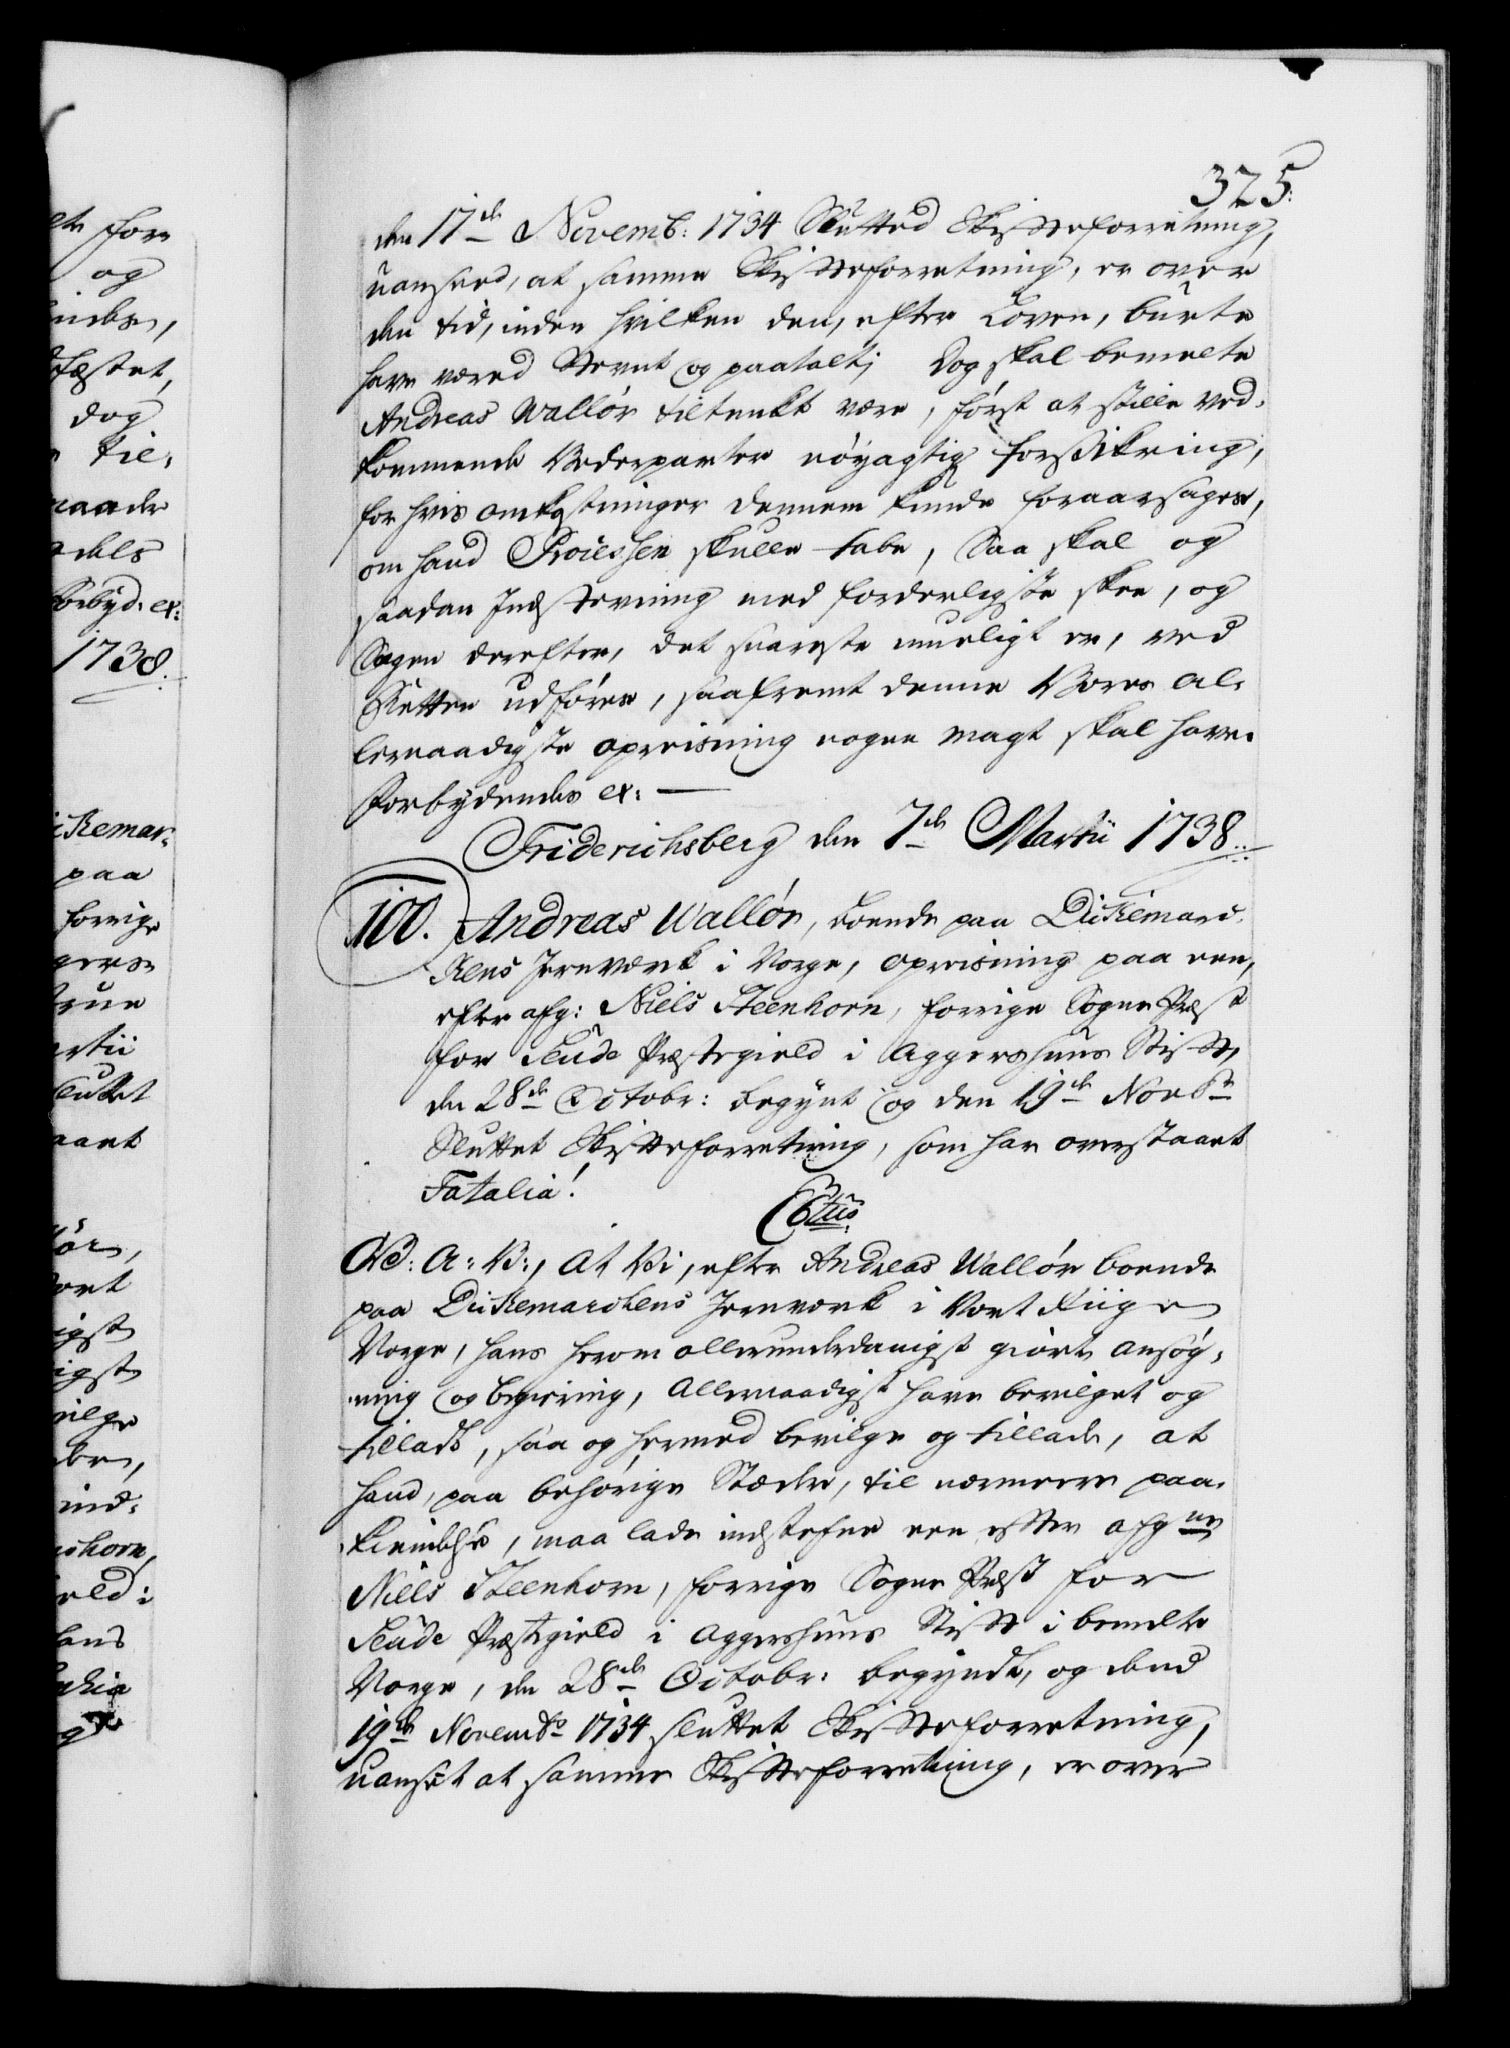 325.
den 17de Novemb: 1734 Slutted Skifteforretning,
uanseed, at samme Skifteforretning, er over
den tid, inden hvilken den, efter Loven, burte
have væred Stevnt og paatalt; Dog skal bemelte
Andreas Wallór tiltenkt være, først at stille ved-
kommende Vederparter nöyagtig forsikring,
for hvis omkostninger dennem kunde foraarsages,
om hand Processen skulle tabe, Saa skal og
saadan Indstevning med forderligste skee, og
Sagen derefter, det snareste mueligt er, ved
Retten udføres, saafremt denne Vores al-
lernaadigste opreisning nogen Magt skal have.
Forbydendes etc: —
Friderichsberg den 7de Martii 1738.
100. Andreas Wallór, boende paa Dickemarc-
kens Jernværk i Norge, opreisning paa een,
efter afg: Niels Steenhorn, forrige Sogne Præst
for Seude Præstegield i Aggershuus Stift,
den 28de Octobr: begynt og den 19de Novbr
Sluttet Skifteforretning, som har overstaaet
Fatalia!
C6tus.
V: A: V:, At Vi, efter Andreas Wallór boende
paa Dickemarckens Jernværk i Vort Riige
Norge, hans herom allerunderdanigst giorte ansøg-
ning og begiering, Allernaadigst have bevilget og
tilladt, saa og hermed bevilge og tillade, at
hand, paa behørige Stæder, til nærmere paa-
kiendelse, maa lade indstefne een efter afgne
Niels Steenhorn, forrige Sogne Præst for
Seude Præstegield i Aggershuus Stift i bemelte
Norge, den 28de Octobr: begyndt, og dend
19de Novembr 1734 sluttet Skifteforretning,
uanset at samme Skifteforretning, er over